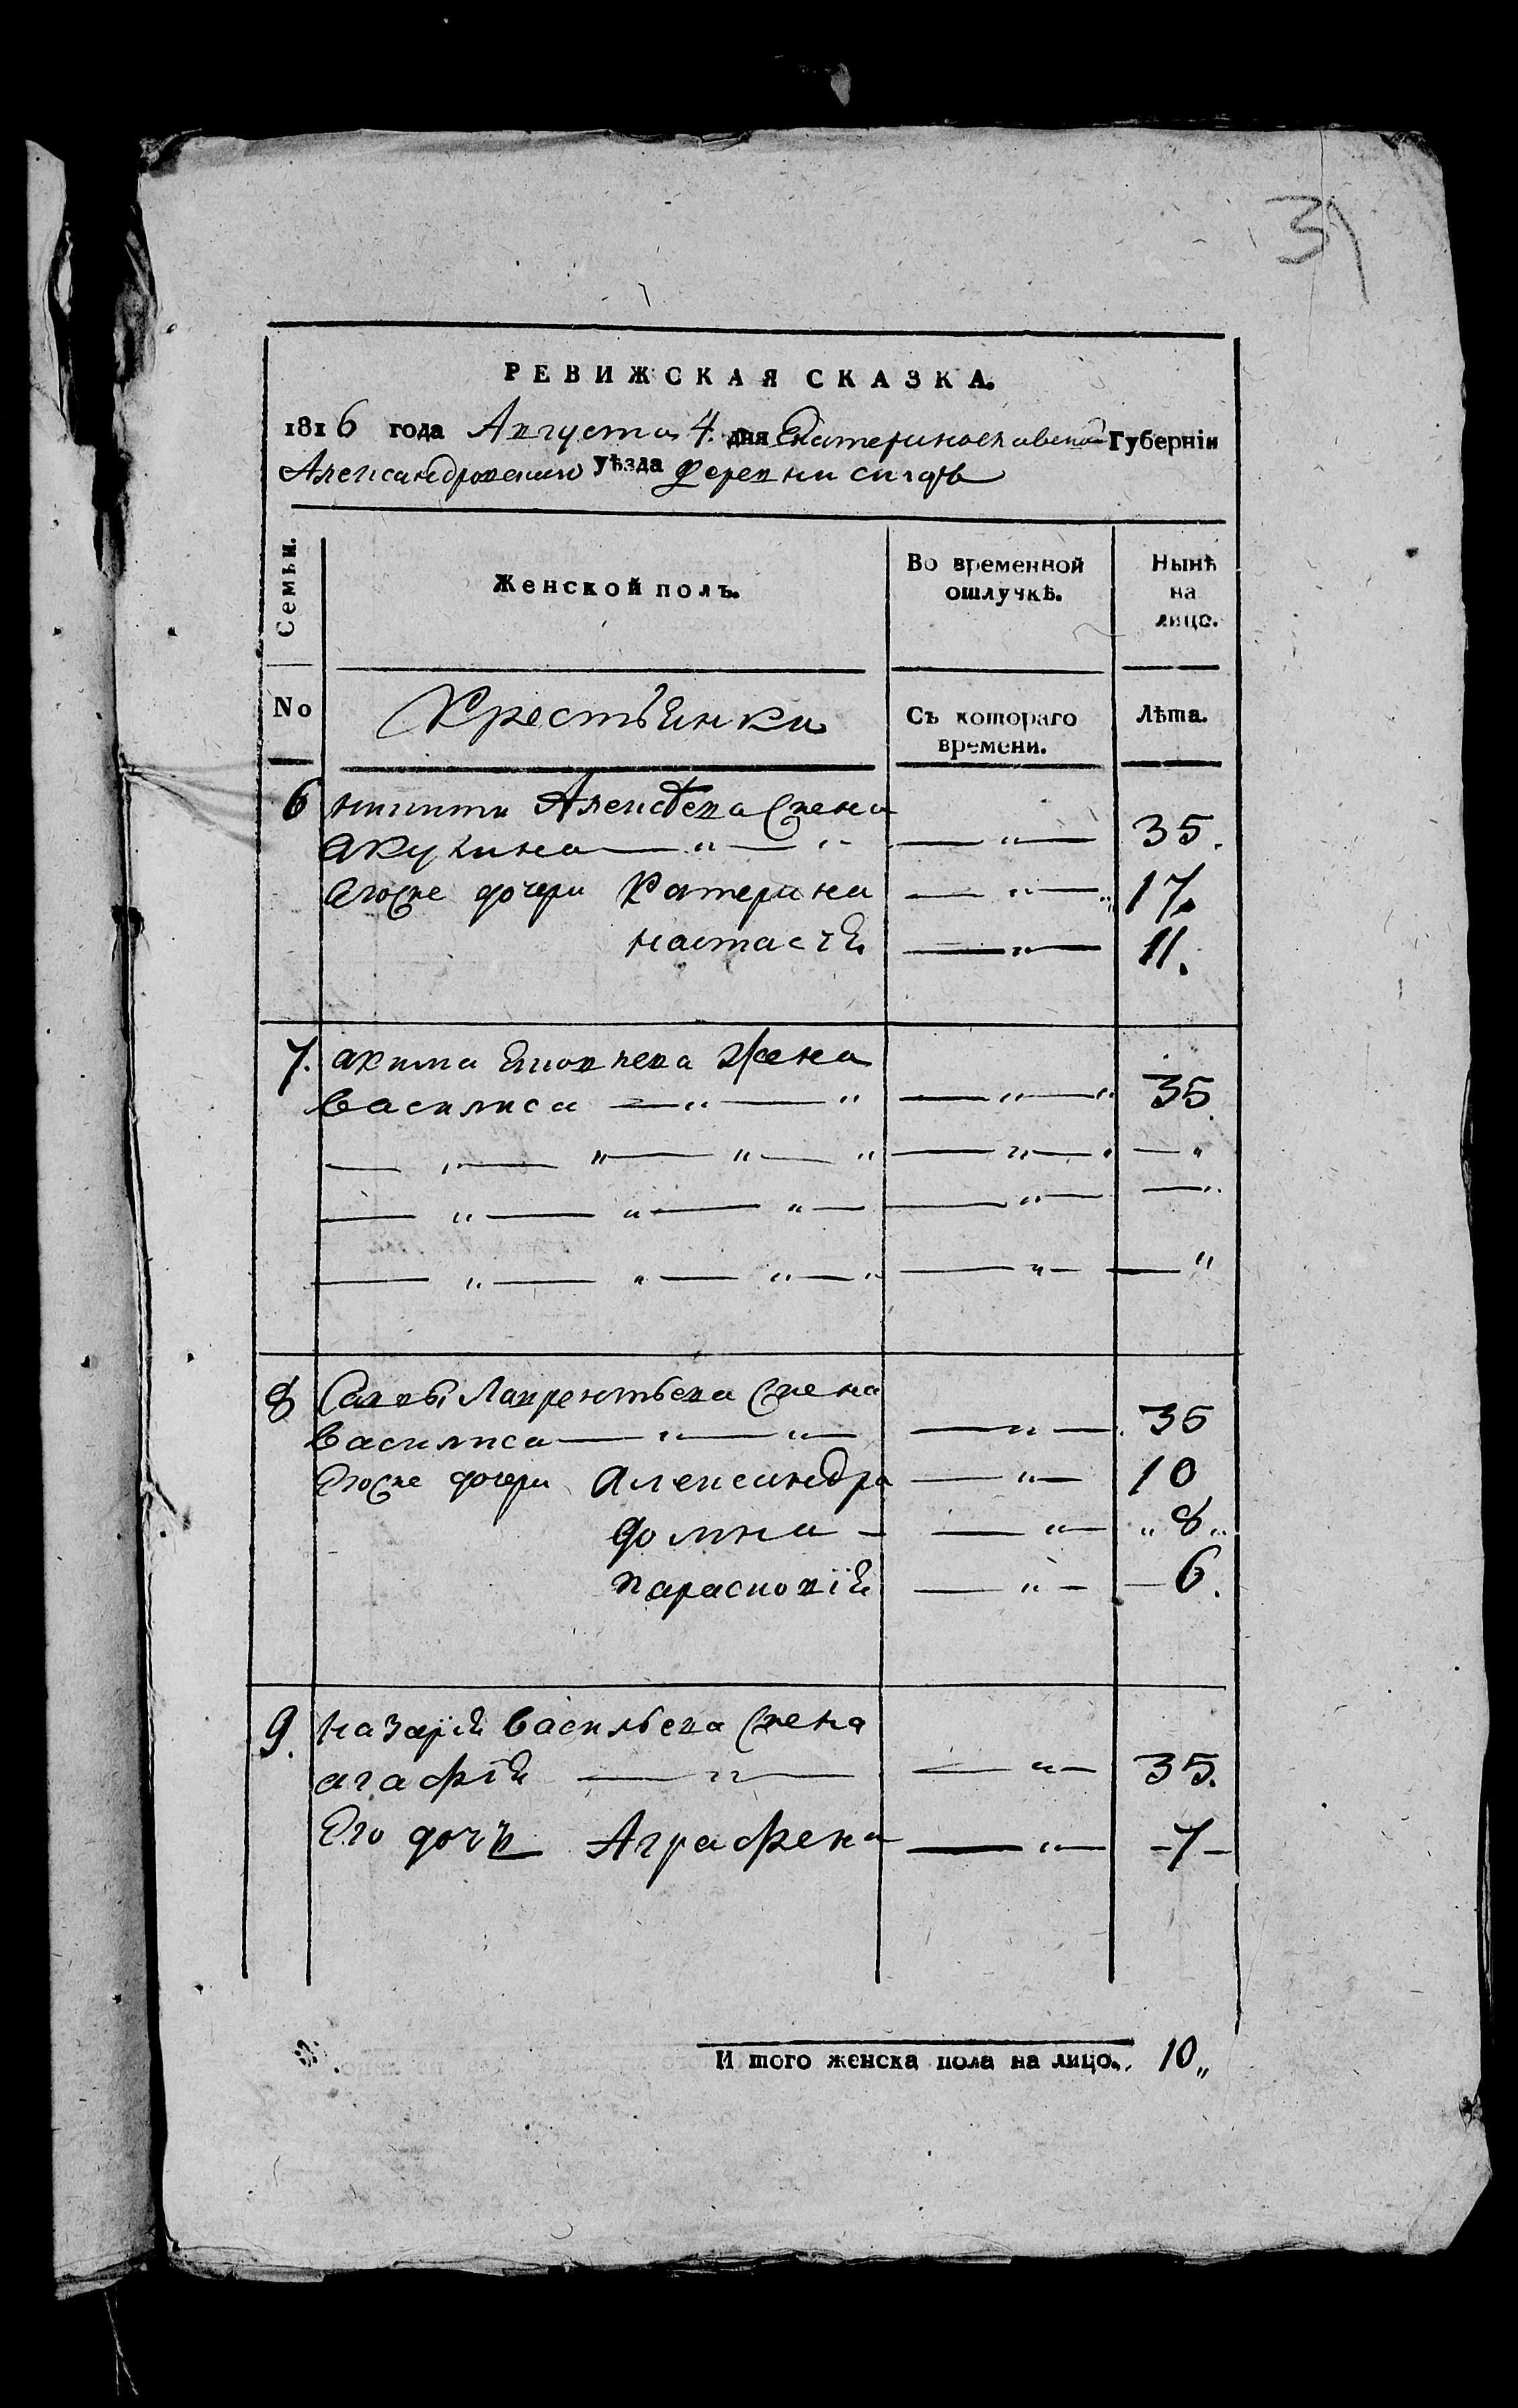 3
РЕВИЖСКАЯ СКАЗКА.
1816 года Августа 4. дня Екатеринославской Губерніи
Александровского уѣзда деревни
Семьи.
Женской полъ.
Во временной
отлучкѣ.
Нынѣ
на
лицо.
No
Крестьянки
Съ котораго
времени.
Лѣта.
6 никиты Алексѣева жена
акулина — " — " — " — 35.
Егоже дочери Катерина — " — 17.
настасія — " — 11.
7. акима жена
василиса — " — " — " — " 35.
— " — " — " — " — " — " — "
— " — " — " — " — "
— " — " — " — " — " — "
8 Саввы Лаврентьева жена
василиса — " — " — — " — 35
Егоже дочери Александра — " — 10
домна — — " — " 8 "
парасковія — " — — 6.
9. назарія васильева жена
агафія — " — — " — 35.
Его дочь Аграфена — " — -7-
И того женска пола на лицо. 10"